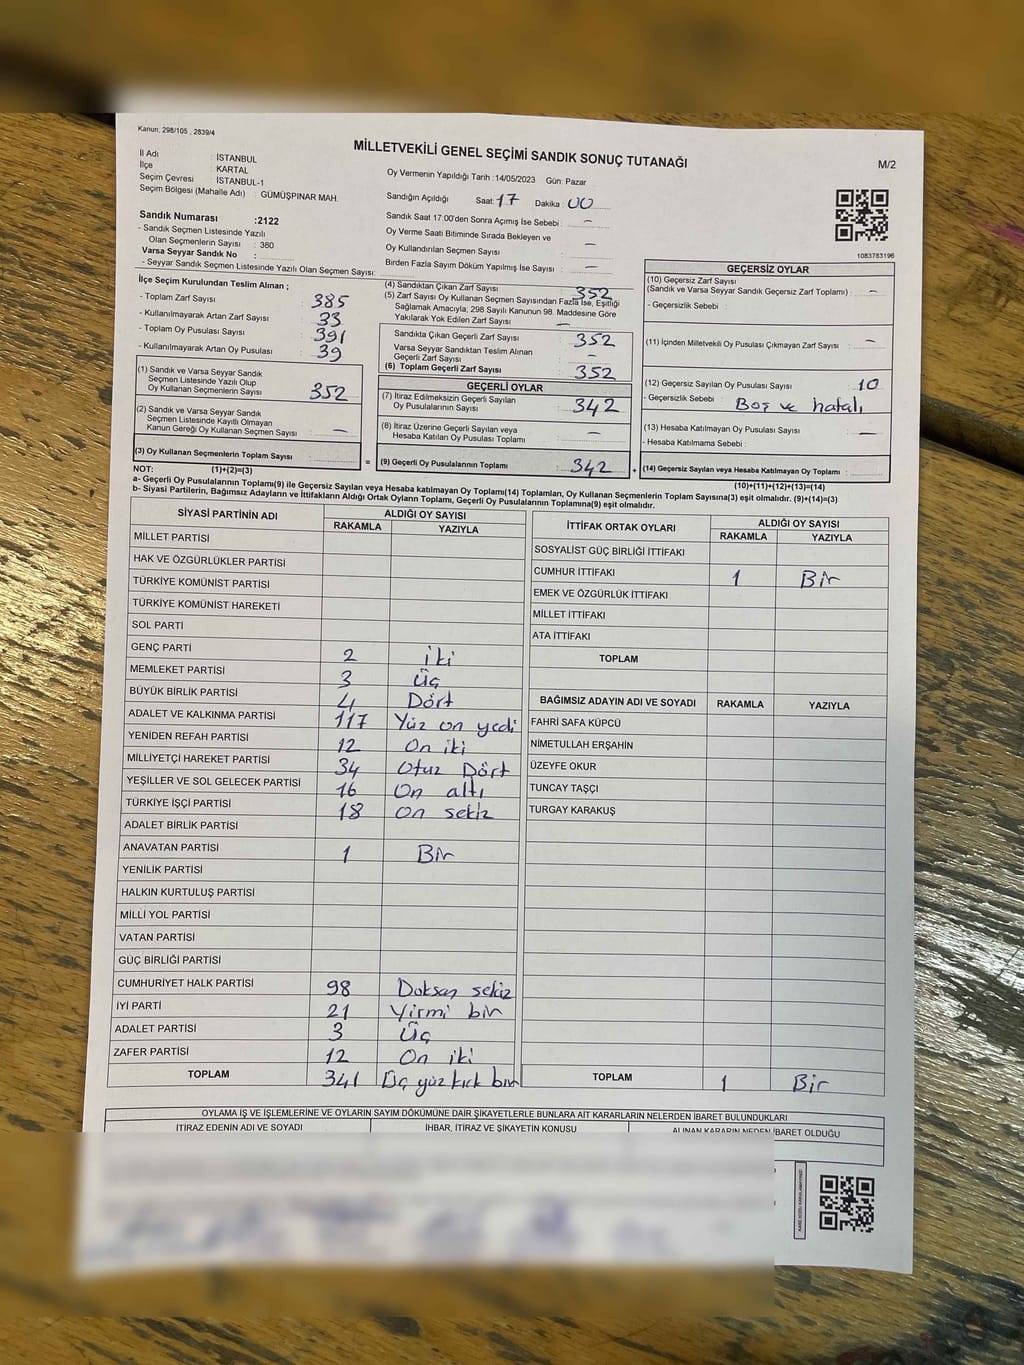 Kanun; 298/105 , 2839/4
MİLLETVEKİLİ GENEL SEÇİMİ SANDIK SONUÇ TUTANAĞI
M/2
İl Adı : İSTANBUL
İlçe : KARTAL
Seçim Çevresi : İSTANBUL-1
Seçim Bölgesi (Mahalle Adı) : GÜMÜŞPINAR MAH.
Sandık Numarası :2122
- Sandık Seçmen Listesinde Yazılı
Olan Seçmenlerin Sayısı : 380
Varsa Seyyar Sandık No :
- Seyyar Sandık Seçmen Listesinde Yazılı Olan Seçmen Sayısı:
Oy Vermenin Yapıldığı Tarih :14/05/2023 Gün: Pazar
Sandığın Açıldığı Saat: 17 Dakika : 00
Sandık Saat 17:00'den Sonra Açımış İse Sebebi : -
Oy Verme Saati Bitiminde Sırada Bekleyen ve
Oy Kullandırılan Seçmen Sayısı : -
Birden Fazla Sayım Döküm Yapılmış İse Sayısı : -
1083783196
İlçe Seçim Kurulundan Teslim Alınan ;
- Toplam Zarf Sayısı : 385
- Kullanılmayarak Artan Zarf Sayısı : 33
- Toplam Oy Pusulası Sayısı : 391
- Kullanılmayarak Artan Oy Pusulası : 39
(1) Sandık ve Varsa Seyyar Sandık
Seçmen Listesinde Yazılı Olup
Oy Kullanan Seçmenlerin Sayısı : 352
(2) Sandık ve Varsa Seyyar Sandık
Seçmen Listesinde Kayıtlı Olmayan
Kanun Gereği Oy Kullanan Seçmen Sayısı : -
(3) Oy Kullanan Seçmenlerin Toplam Sayısı :
(4) Sandıktan Çıkan Zarf Sayısı : 352
(5) Zarf Sayısı Oy Kullanan Seçmen Sayısından Fazla İse, Eşitliği
Sağlamak Amacıyla; 298 Sayılı Kanunun 98. Maddesine Göre
Yakılarak Yok Edilen Zarf Sayısı : -
Sandıkta Çıkan Geçerli Zarf Sayısı : 352
Varsa Seyyar Sandıktan Teslim Alınan
Geçerli Zarf Sayısı : -
(6) Toplam Geçerli Zarf Sayısı : 352
GEÇERLİ OYLAR
(7) İtiraz Edilmeksizin Geçerli Sayılan
Oy Pusulalarının Sayısı : 342
(8) İtiraz Üzerine Geçerli Sayılan veya
Hesaba Katılan Oy Pusulası Toplamı : -
= (9) Geçerli Oy Pusulalarının Toplamı : 342
GEÇERSİZ OYLAR
(10) Geçersiz Zarf Sayısı
(Sandık ve Varsa Seyyar Sandık Geçersiz Zarf Toplamı) : -
- Geçersizlik Sebebi :
(11) İçinden Milletvekili Oy Pusulası Çıkmayan Zarf Sayısı : -
(12) Geçersiz Sayılan Oy Pusulası Sayısı : 10
- Geçersizlik Sebebi : Boş ve hatalı
(13) Hesaba Katılmayan Oy Pusulası Sayısı : -
- Hesaba Katılmama Sebebi :
+ (14) Geçersiz Sayılan veya Hesaba Katılmayan Oy Toplamı :
NOT: (1)+(2)=(3)
(10)+(11)+(12)+(13)=(14)
a- Geçerli Oy Pusulalarının Toplamı(9) ile Geçersiz Sayılan veya Hesaba katılmayan Oy Toplamı(14) Toplamları, Oy Kullanan Seçmenlerin Toplam Sayısına(3) eşit olmalıdır. (9)+(14)=(3)
b- Siyasi Partilerin, Bağımsız Adayların ve İttifakların Aldığı Ortak Oyların Toplamı, Geçerli Oy Pusulalarının Toplamına(9) eşit olmalıdır.
SİYASİ PARTİNİN ADI ALDIĞI OY SAYISI
RAKAMLA YAZIYLA
MİLLET PARTİSİ
HAK VE ÖZGÜRLÜKLER PARTİSİ
TÜRKİYE KOMÜNİST PARTİSİ
TÜRKİYE KOMÜNİST HAREKETİ
SOL PARTİ
GENÇ PARTİ 2 iki
MEMLEKET PARTİSİ 3 Üç
BÜYÜK BİRLİK PARTİSİ 4 Dört
ADALET VE KALKINMA PARTİSİ 117 Yüz on yedi
YENİDEN REFAH PARTİSİ 12 On iki
MİLLİYETÇİ HAREKET PARTİSİ 34 Otuz Dört
YEŞİLLER VE SOL GELECEK PARTİSİ 16 On altı
TÜRKİYE İŞÇİ PARTİSİ 18 On sekiz
ADALET BİRLİK PARTİSİ
ANAVATAN PARTİSİ 1 Bir
YENİLİK PARTİSİ
HALKIN KURTULUŞ PARTİSİ
MİLLİ YOL PARTİSİ
VATAN PARTİSİ
GÜÇ BİRLİĞİ PARTİSİ
CUMHURİYET HALK PARTİSİ 98 Doksan sekiz
İYİ PARTİ 21 Yirmi bir
ADALET PARTİSİ 3 Üç
ZAFER PARTİSİ 12 On iki
TOPLAM 341 Üç yüz kırk bir
İTTİFAK ORTAK OYLARI ALDIĞI OY SAYISI
RAKAMLA YAZIYLA
SOSYALİST GÜÇ BİRLİĞİ İTTİFAKI
CUMHUR İTTİFAKI 1 Bir
EMEK VE ÖZGÜRLÜK İTTİFAKI
MİLLET İTTİFAKI
ATA İTTİFAKI
TOPLAM
BAĞIMSIZ ADAYIN ADI VE SOYADI RAKAMLA YAZIYLA
FAHRİ SAFA KÜPCÜ
NİMETULLAH ERŞAHİN
ÜZEYFE OKUR
TUNCAY TAŞÇI
TURGAY KARAKUŞ
TOPLAM 1 Bir
OYLAMA İŞ VE İŞLEMLERİNE VE OYLARIN SAYIM DÖKÜMÜNE DAİR ŞİKAYETLERLE BUNLARA AİT KARARLARIN NELERDEN İBARET BULUNDUKLARI
İTİRAZ EDENİN ADI VE SOYADI İHBAR, İTİRAZ VE ŞİKAYETİN KONUSU ALINAN KARARIN NEDEN İBARET OLDUĞU